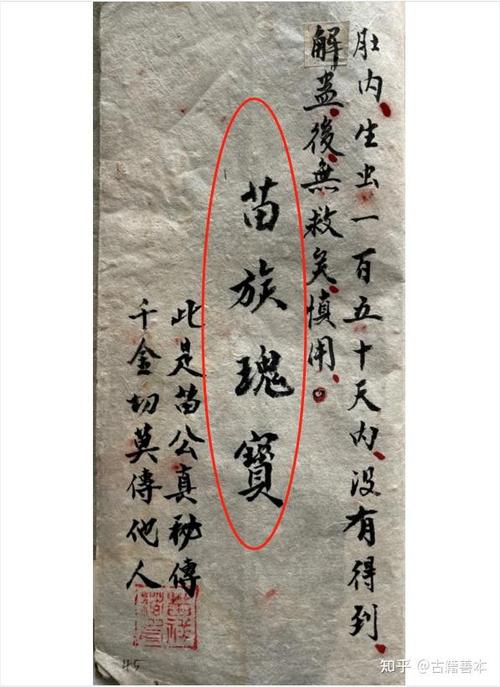 肚内生虫一百五十天内、没有得到、
解蛊後無救矣慎用。
苗族瑰寶
此是苗公真秘傳
千金切莫傳他人
45
知乎 @古籍善本